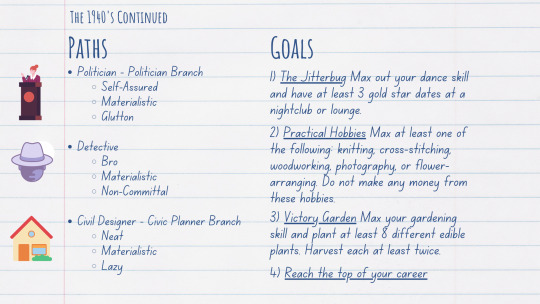 The 1940's Continued
Paths
• Politician - Politician Branch
○ Self-Assured
○ Materialistic
○ Glutton
• Detective
○ Bro
○ Materialistic
○ Non-Committal
• Civil Designer - Civic Planner Branch
○ Neat
○ Materialistic
○ Lazy
Goals
1) The Jitterbug Max out your dance skill
and have at least 3 gold star dates at a
nightclub or lounge.
2) Practical Hobbies Max at least one of
the following: knitting, cross-stitching,
woodworking, photography, or flower-
arranging. Do not make any money from
these hobbies.
3) Victory Garden Max your gardening
skill and plant at least 8 different edible
plants. Harvest each at least twice.
4) Reach the top of your career